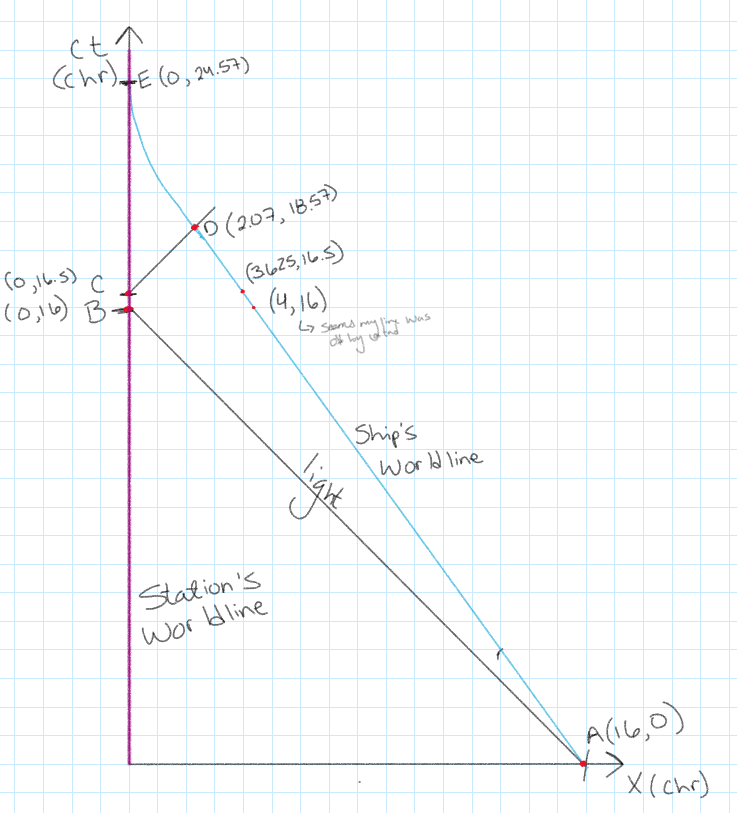 Ct
(Chr)
E (0, 24.57)
D (2.07, 18.57)
(0,16.5) C
(3.625,16.5)
(0,16) B
(4,16)
↳ seems my line was
off by
Ship's
Worldline
light
Station's
Worldline
A(16,0)
X (chr)